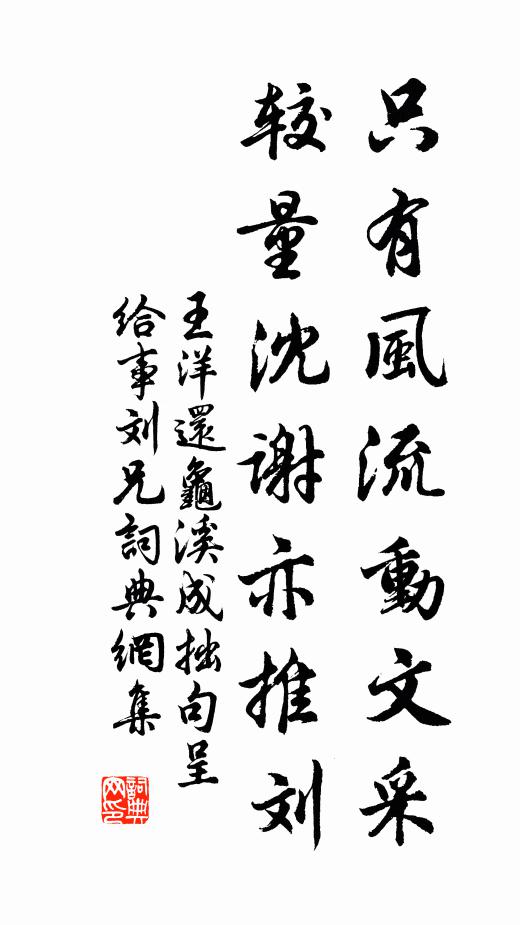 只有風流動文采
较量沈谢亦推刘
王洋還龜溪成拙句呈
给事刘兄詞典網集
詞典網印